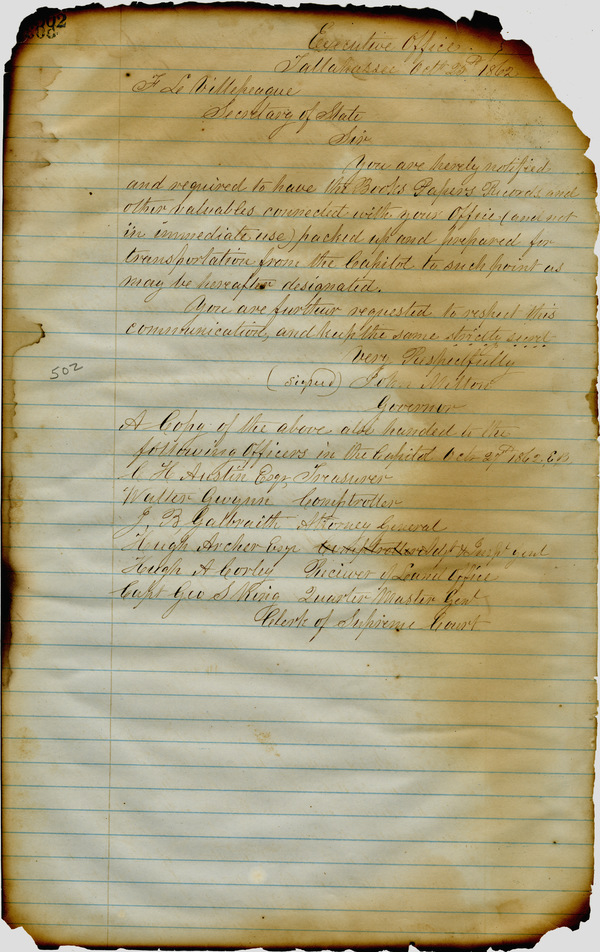 502
Executive Office
Tallahassee Octr 1862
F L Villepeague
Secretary of State
Sir
You are hereby notified
and required to have the Books Papers Records and
other valuables connected with your Office (and not
in immediate use) packed up and prepared for
transportation from the Capitol to such point as
may be hereafter designated.
You are further requested to respect this
communication, and keep the same strictly secret
Very Respectfully
(signed) John Milton
Governor
A Copy of the above also handed to the
following Officers in the Capitol Octr 1862
C H Austin Esqr Treasurer
Walter Gwynn Comptroller
J. B Galbraith Attorney General
Hugh Archer Esqr Adjt & Insp genl
Hugh A Corley Reciever of Land Office
Capt Geo S King Quarter Master Genl
Clerk of Supreme Court
502